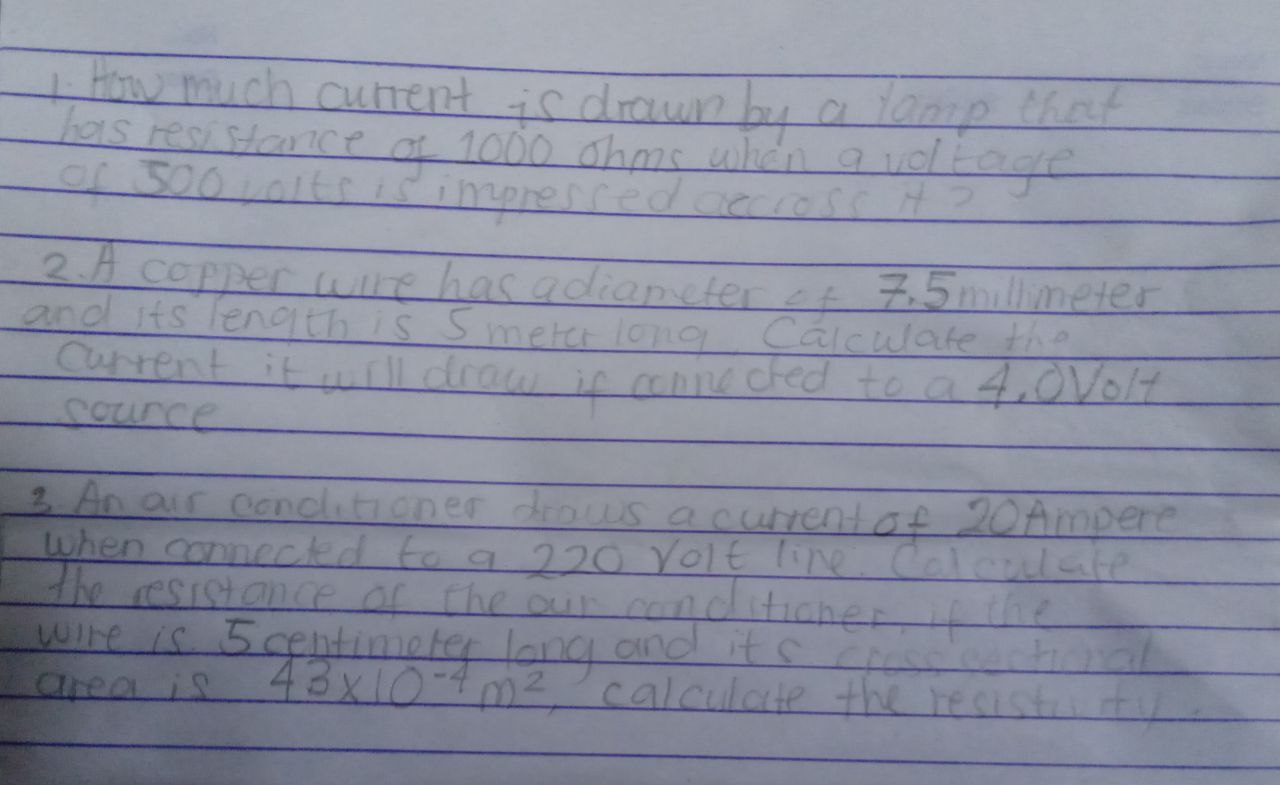 1. How much current is drawn by a lamp that
has resistance of 1000 ohms when a voltage
of 500 volts is impressed accross it?
2. A copper wire has a diameter of 7.5 millimeter
and its length is 5 meter long. Calculate the
current it will draw if connected to a 4.0 Volt
source
3. An air conditioner draws a current of 20 Ampere
when connected to a 220 Volt line. Calculate
the resistance of the air conditioner, if the
wire is 5 centimeter long and its cross sectional
area is 43x10⁻⁴ m², calculate the resistivity.